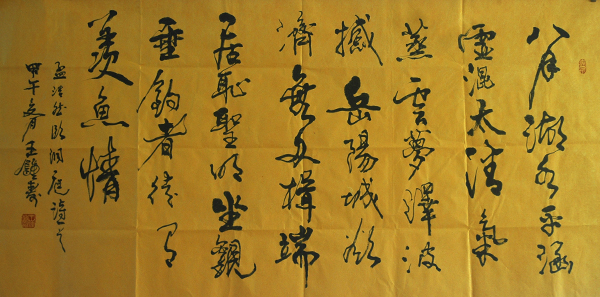 八月湖水平涵
虛混太清氣
蒸雲夢澤波
撼岳陽城欲
濟無舟楫端
居恥聖明坐觀
垂釣者徒有
羨魚情
孟浩然臨洞庭詩
甲午夏月王